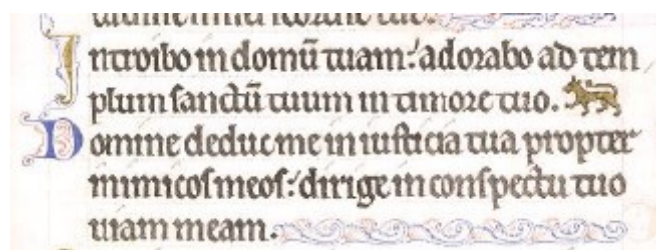 Introibo in domū tuam: adorabo ad tem
plum sanctū tuum in timore tuo.
Domine deduc me in iusticia tua propter
inimicos meos: dirige in conspectu tuo
uiam meam.